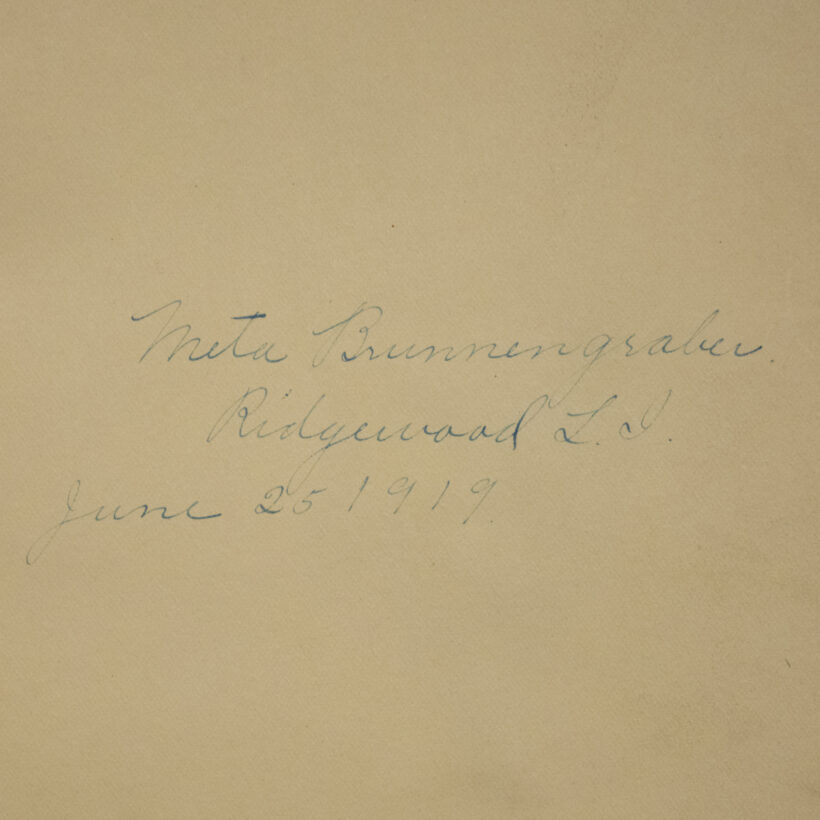 Meta Brunnengraber.
Ridgewood L. I.
June 25 1919